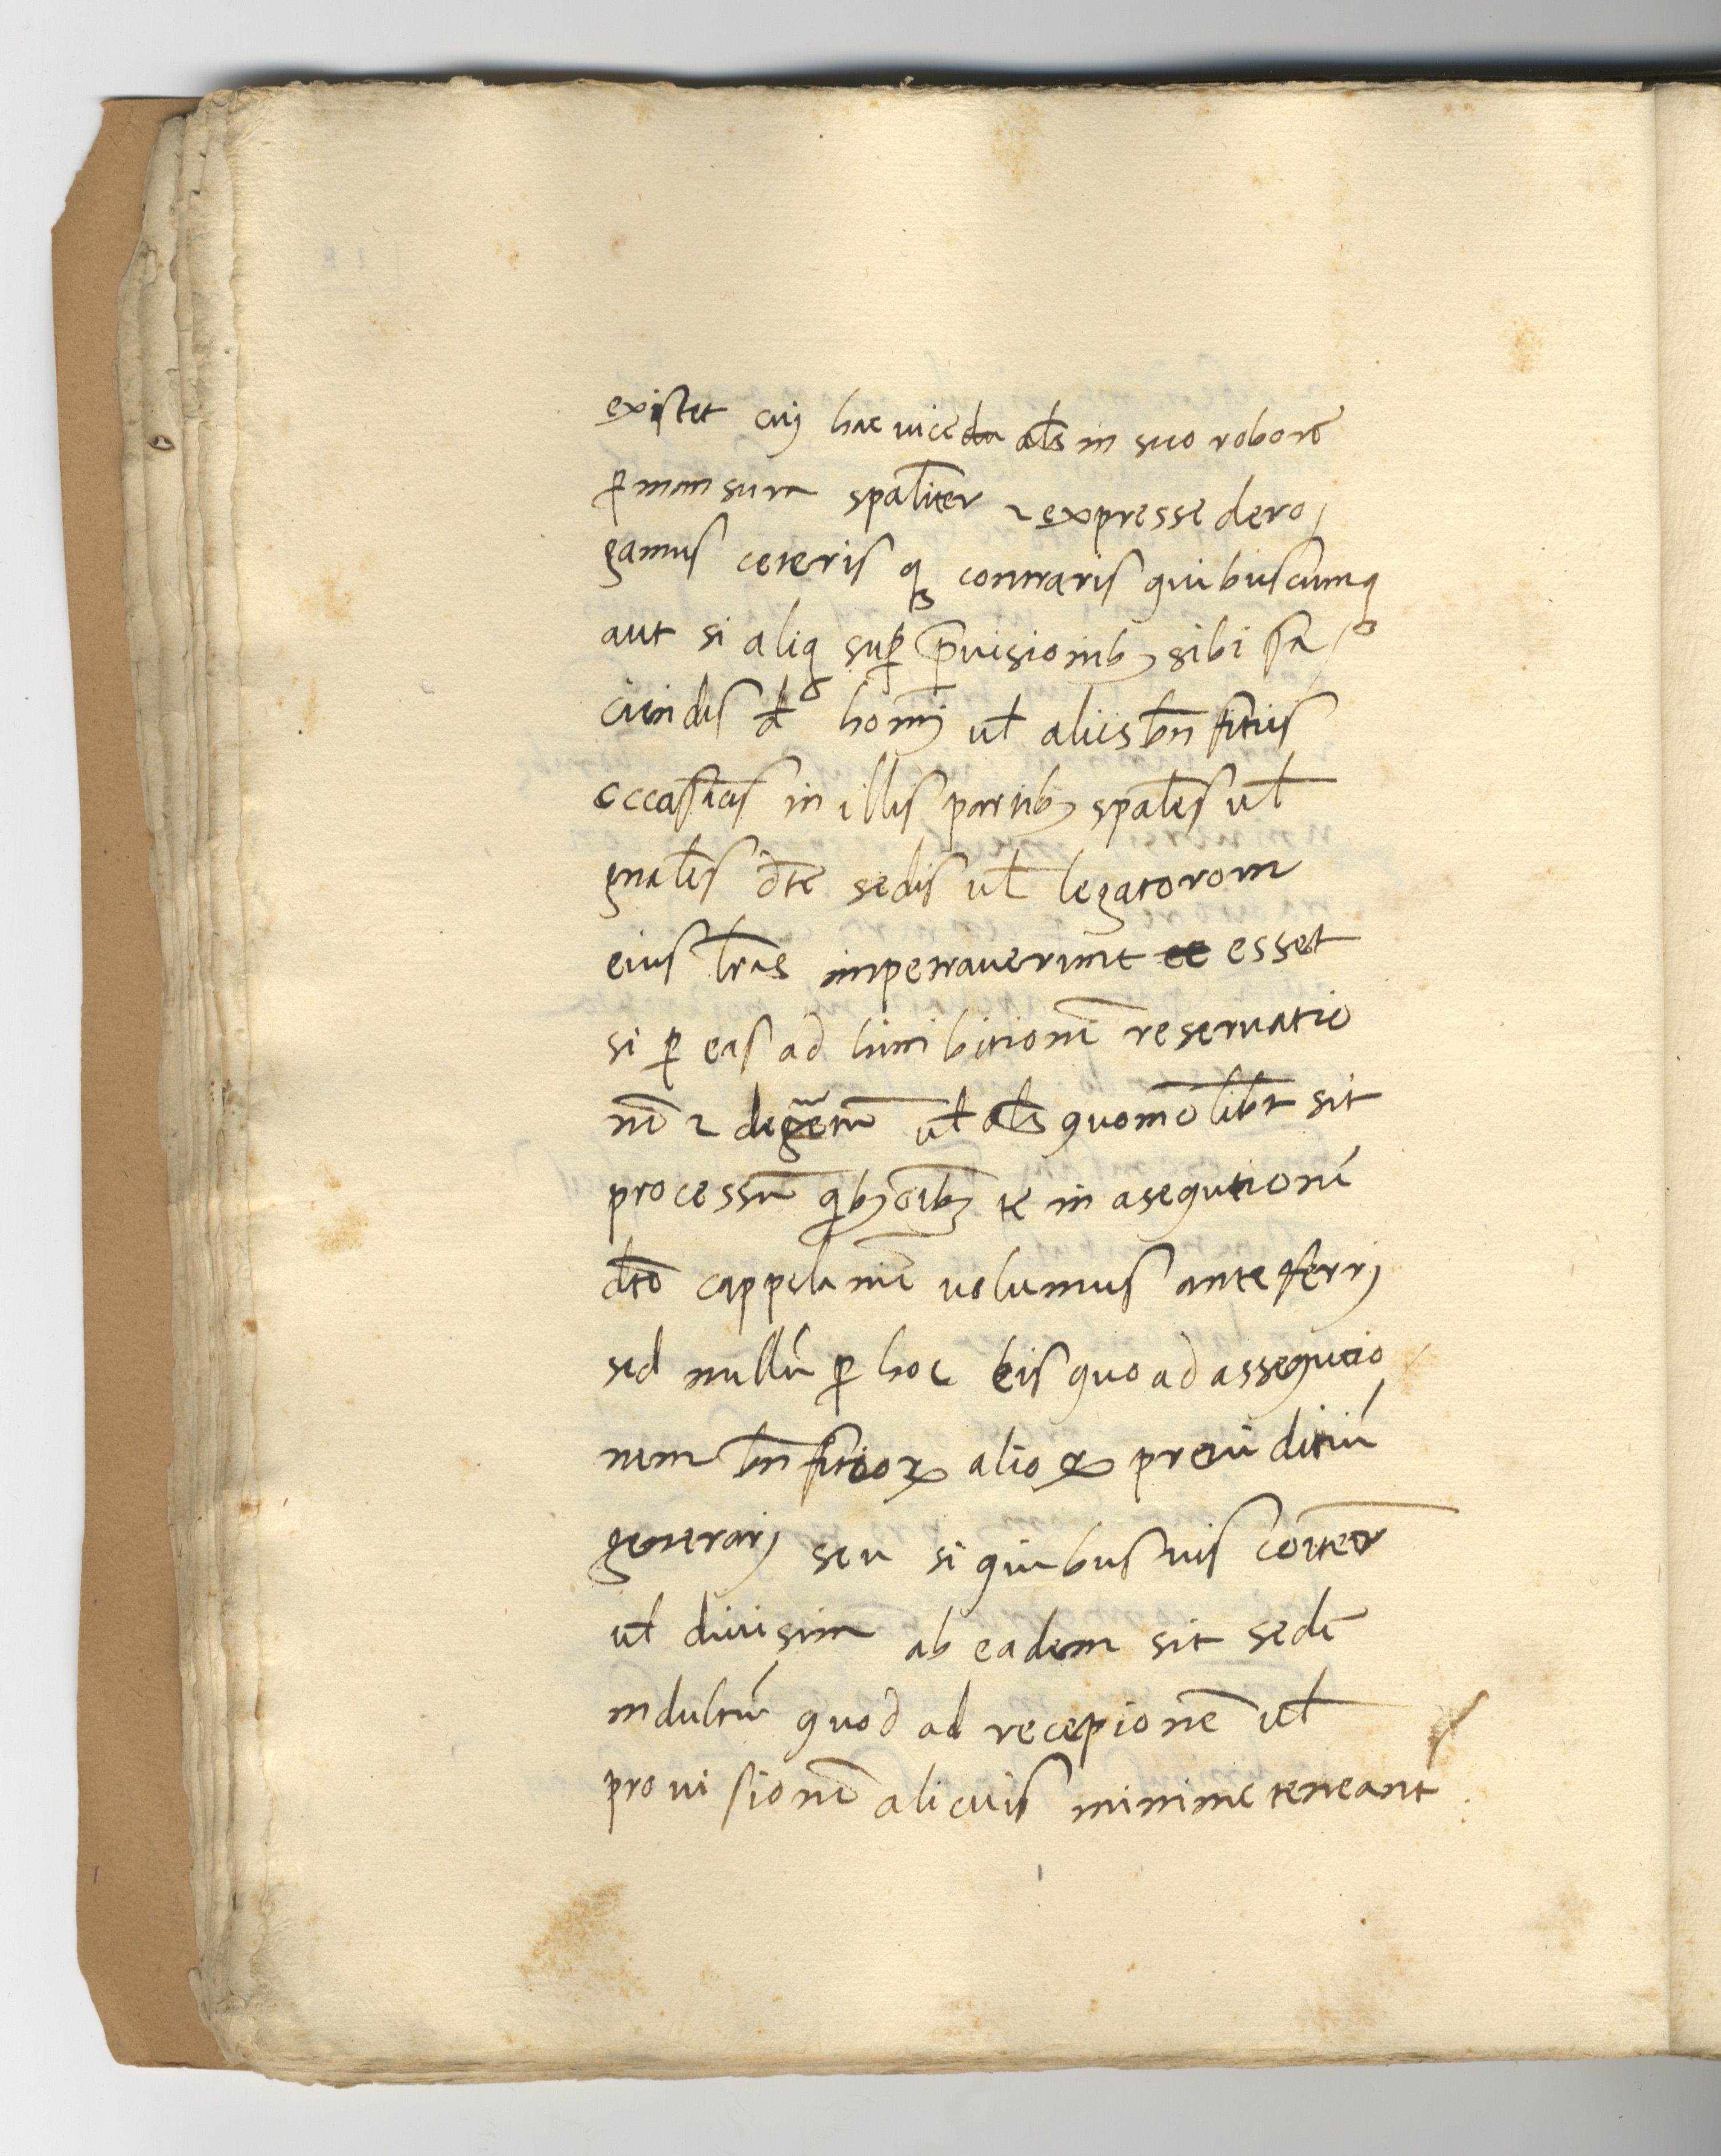 existet cuiꝰ hac uice da al̄s in suo robore
ꝑmansura spāliter ⁊ expresse dero
gamus ceteris qꝫ contraris quibuscumq
aut si aliq̨ suꝑ ꝓuisionibꝫ sibi fa
ciendis de homoi ul̄ aliis bn̄fitiis
eccāsticis in illis partibꝫ spāles ul̄
gnāles dc̄te sedis ul̄ legatorom
eius lr̄as inpetrauerunt ee esset
si ꝑ eas ad hini bitionē reseruatio
nē ⁊ degetū ul̄ al̄s quomōlibt̄ sit
processū qbꝫ oībꝫ te in asequtionē
dc̄te cappelanie uolumus anteferri
sed nullū ꝑ hoc eis quo ad assequtio
nem bn̄fitioꝝ alioꝝ preiuditiū
generari seu si quibusuis coīter
ul̄ diuisim ab eadem sit sede
indultū quod ad recepionē ul̄
prouisionē alicuis minime teneant